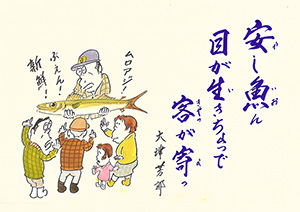 安し魚ん
目が生きちょっで
客が寄っ
大津
ムロアジ!
ぶえん!
新鮮!